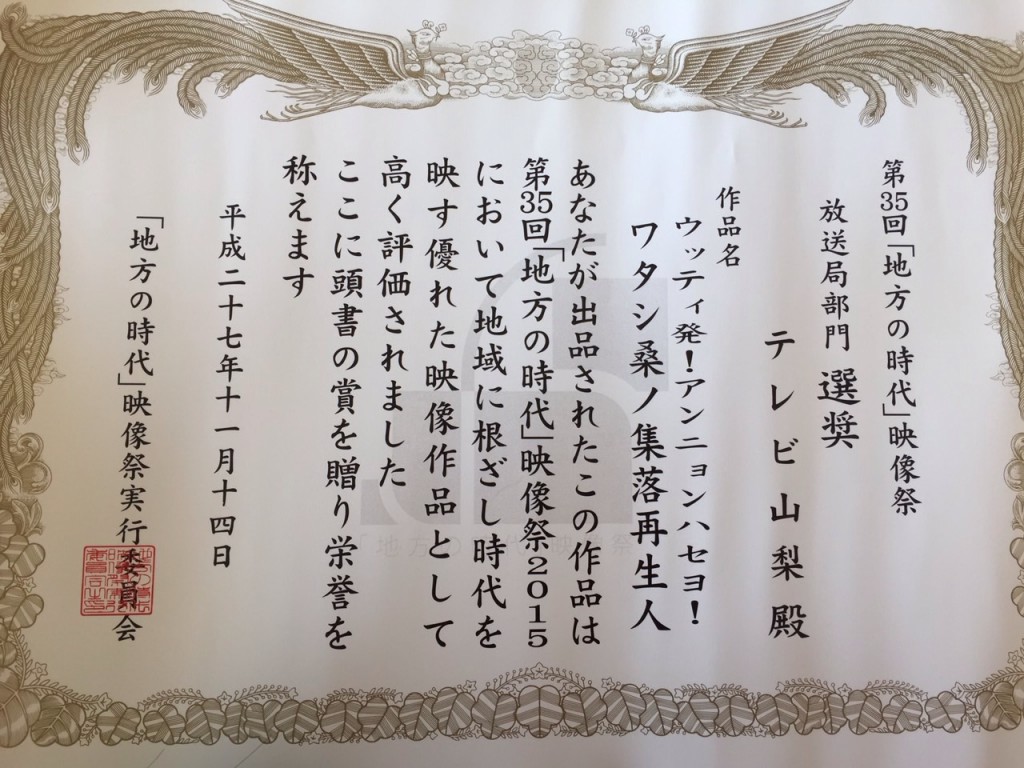 第35回「地方の時代」映像祭
放送局部門 選奨
テレビ山梨殿
作品名
ウッティ発！アンニョンハセヨ！
ワタシ桑ノ集落再生人
あなたが出品されたこの作品は
第35回「地方の時代」映像祭2015
において地域に根ざし時代を
映す優れた映像作品として
高く評価されました
ここに頭書の賞を贈り栄誉を
称えます
平成二十七年十一月十四日
「地方の時代」映像祭実行委員会
「地方の時代」映像祭